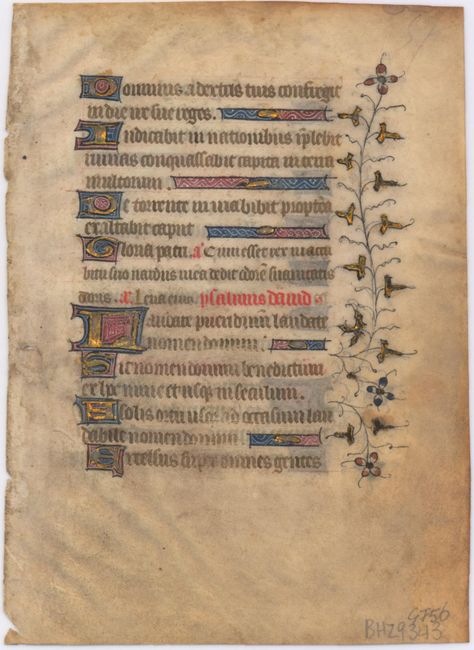 Dominus a dextris tuis confregit
in die ire sue reges.
Iudicabit in nationibus īplebit
ruinas conquassabit capita in terra
multorum.
De torrente in via bibit propterea
exaltabit caput
Gloria patri. a Cum esset rex in accu
bitu suo nardus mea dedit odorē suauitatis
Leua eius. psalmus dauid
Laudate pueri dn̄m laudate
nomen domini.
Sit nomen domini benedictum
ex hoc nunc et usqȝ in seculum.
A solis ortu usqȝ ad occasum lau
dabile nomen domini
Excelsus super omnes gentes
GF56
BHZ9343